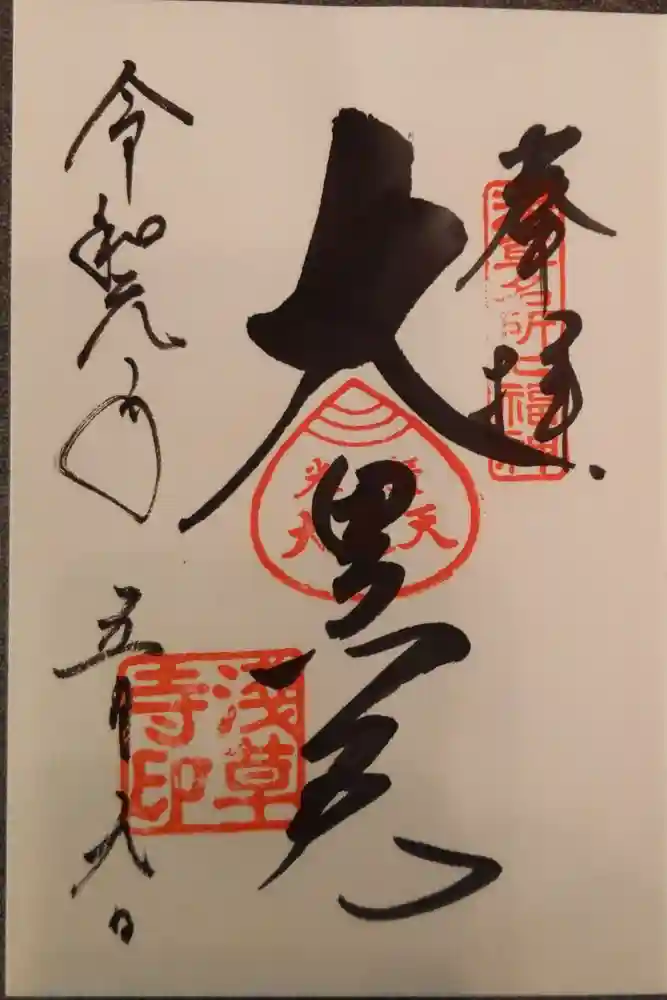 奉拝
浅草名所七福神
大黒天
浅草
寺印
令和元年五月九日